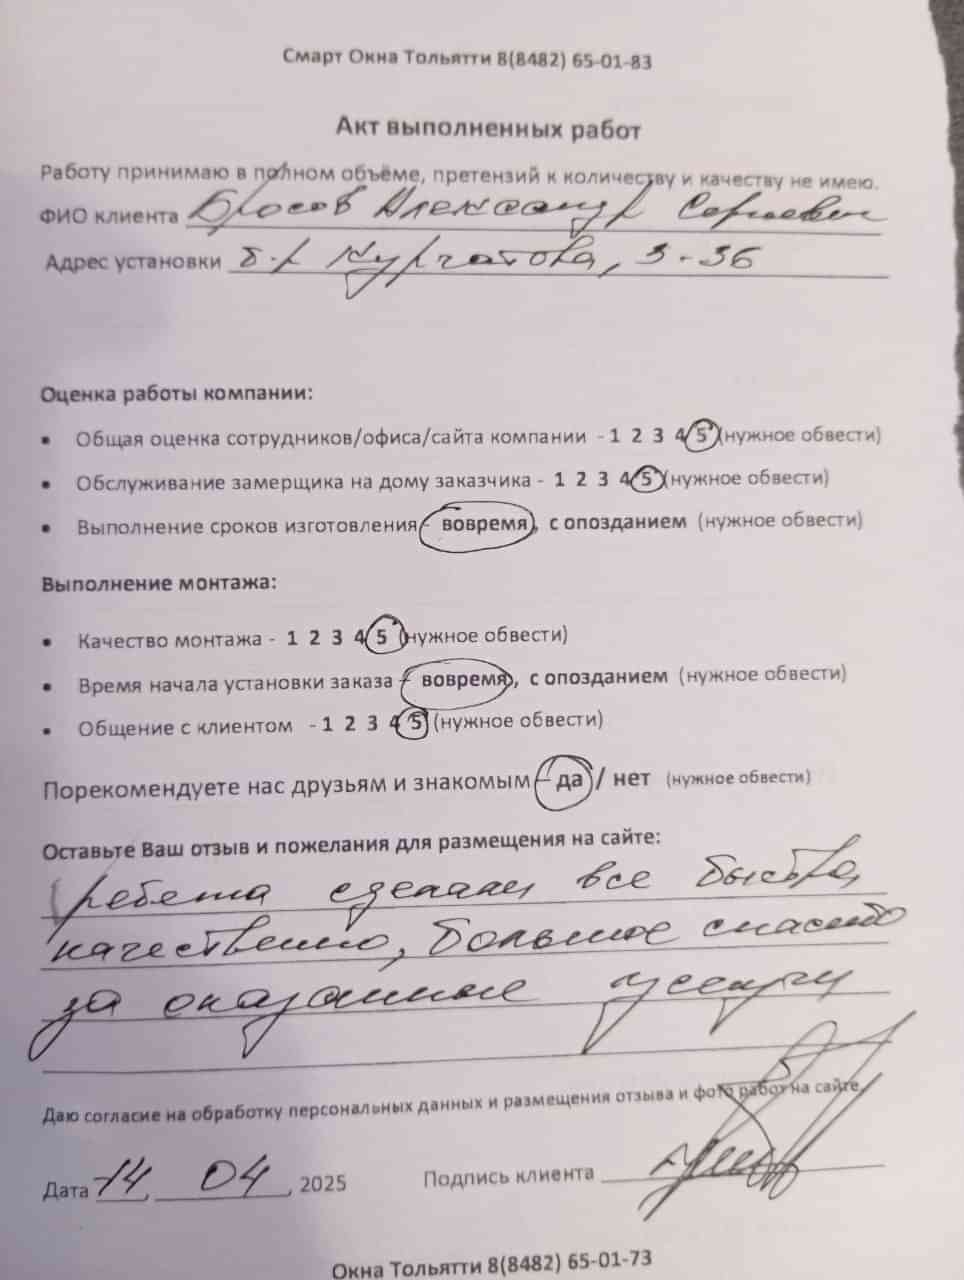 Смарт Окна Тольятти 8(8482) 65-01-83
Акт выполненных работ
Работу принимаю в полном объёме, претензий к количеству и качеству не имею.
ФИО клиента Бросов Александр Сергеевич
Адрес установки б-р Курчатова, 3-36
Оценка работы компании:
• Общая оценка сотрудников/офиса/сайта компании - 1 2 3 4 5 (нужное обвести)
• Обслуживание замерщика на дому заказчика - 1 2 3 4 5 (нужное обвести)
• Выполнение сроков изготовления - вовремя, с опозданием (нужное обвести)
Выполнение монтажа:
• Качество монтажа - 1 2 3 4 5 (нужное обвести)
• Время начала установки заказа - вовремя, с опозданием (нужное обвести)
• Общение с клиентом - 1 2 3 4 5 (нужное обвести)
Порекомендуете нас друзьям и знакомым – да / нет (нужное обвести)
Оставьте Ваш отзыв и пожелания для размещения на сайте:
ребята сделали все быстро,
качественно, большое спасибо
за оказанные услуги
Даю согласие на обработку персональных данных и размещения отзыва и фото работ на сайте.
Дата 14, 04, 2025 Подпись клиента
Окна Тольятти 8(8482) 65-01-73